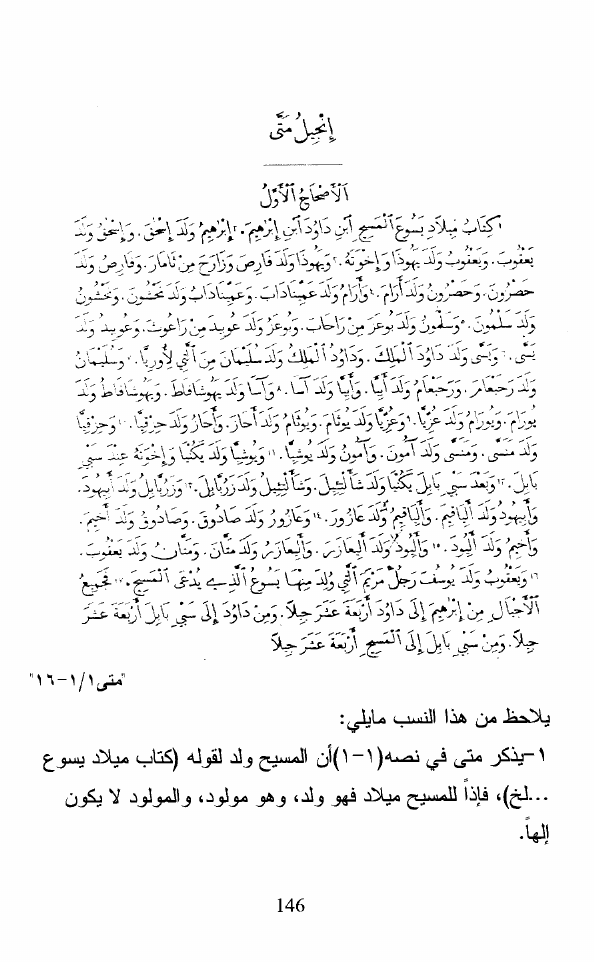 إِنْجِيلُ مَتَّى
اَلْأَصْحَاحُ ٱلْأَوَّلُ
١كِتَابُ مِيلَادِ يَسُوعَ ٱلْمَسِيحِ ٱبْنِ دَاوُدَ ٱبْنِ إِبْرٰهِيمَ. ٢إِبْرٰهِيمُ وَلَدَ إِسْحٰقَ. وَإِسْحٰقُ وَلَدَ
يَعْقُوبَ. وَيَعْقُوبُ وَلَدَ يَهُوذَا وَإِخْوَتَهُ. ٣وَيَهُوذَا وَلَدَ فَارِصَ وَزَارَحَ مِنْ ثَامَارَ. وَفَارِصُ وَلَدَ
حَصْرُونَ. وَحَصْرُونُ وَلَدَ أَرَامَ. ٤وَأَرَامُ وَلَدَ عَمِّينَادَابَ. وَعَمِّينَادَابُ وَلَدَ نَحْشُونَ. وَنَحْشُونُ
وَلَدَ سَلْمُونَ. ٥وَسَلْمُونُ وَلَدَ بُوعَزَ مِنْ رَاحَابَ. وَبُوعَزُ وَلَدَ عُوبِيدَ مِنْ رَاعُوثَ. وَعُوبِيدُ وَلَدَ
يَسَّى. ٦وَيَسَّى وَلَدَ دَاوُدَ ٱلْمَلِكَ. وَدَاوُدُ ٱلْمَلِكُ وَلَدَ سُلَيْمَانَ مِنَ ٱلَّتِي لِأُورِيَّا. ٧وَسُلَيْمَانُ
وَلَدَ رَحَبْعَامَ. وَرَحَبْعَامُ وَلَدَ أَبِيَّا. وَأَبِيَّا وَلَدَ آسَا. ٨وَآسَا وَلَدَ يَهُوشَافَاطَ. وَيَهُوشَافَاطُ وَلَدَ
يُورَامَ. وَيُورَامُ وَلَدَ عُزِّيَّا. ٩وَعُزِّيَّا وَلَدَ يُوثَامَ. وَيُوثَامُ وَلَدَ أَحَازَ. وَأَحَازُ وَلَدَ حِزْقِيَّا. ١٠وَحِزْقِيَّا
وَلَدَ مَنَسَّى. وَمَنَسَّى وَلَدَ آمُونَ. وَآمُونُ وَلَدَ يُوشِيَّا. ١١وَيُوشِيَّا وَلَدَ يَكُنْيَا وَإِخْوَتَهُ عِنْدَ سَبْيِ
بَابِلَ. ١٢وَبَعْدَ سَبْيِ بَابِلَ يَكُنْيَا وَلَدَ شَأَلْتِئِيلَ. وَشَأَلْتِئِيلُ وَلَدَ زَرُبَّابِلَ. ١٣وَزَرُبَّابِلُ وَلَدَ أَبِيهُودَ.
وَأَبِيهُودُ وَلَدَ أَلِيَاقِيمَ. وَأَلِيَاقِيمُ وَلَدَ عَازُورَ. ١٤وَعَازُورُ وَلَدَ صَادُوقَ. وَصَادُوقُ وَلَدَ أَخِيمَ.
وَأَخِيمُ وَلَدَ أَلِيُودَ. ١٥وَأَلِيُودُ وَلَدَ أَلِيعَازَرَ. وَأَلِيعَازَرُ وَلَدَ مَتَّانَ. وَمَتَّانُ وَلَدَ يَعْقُوبَ.
١٦وَيَعْقُوبُ وَلَدَ يُوسُفَ رَجُلَ مَرْيَمَ ٱلَّتِي وُلِدَ مِنْهَا يَسُوعُ ٱلَّذِي يُدْعَى ٱلْمَسِيحَ. ١٧فَجَمِيعُ
ٱلْأَجْيَالِ مِنْ إِبْرٰهِيمَ إِلَى دَاوُدَ أَرْبَعَةَ عَشَرَ جِيلًا. وَمِنْ دَاوُدَ إِلَى سَبْيِ بَابِلَ أَرْبَعَةَ عَشَرَ
جِيلًا. وَمِنْ سَبْيِ بَابِلَ إِلَى ٱلْمَسِيحِ أَرْبَعَةَ عَشَرَ جِيلًا
"متى١/١-١٦"
يلاحظ من هذا النسب مايلي:
١-يذكر متى في نصه(١-١)أن المسيح ولد لقوله (كتاب ميلاد يسوع
...لخ)، فإذاً للمسيح ميلاد فهو ولد، وهو مولود، والمولود لا يكون
إلهاً.
146